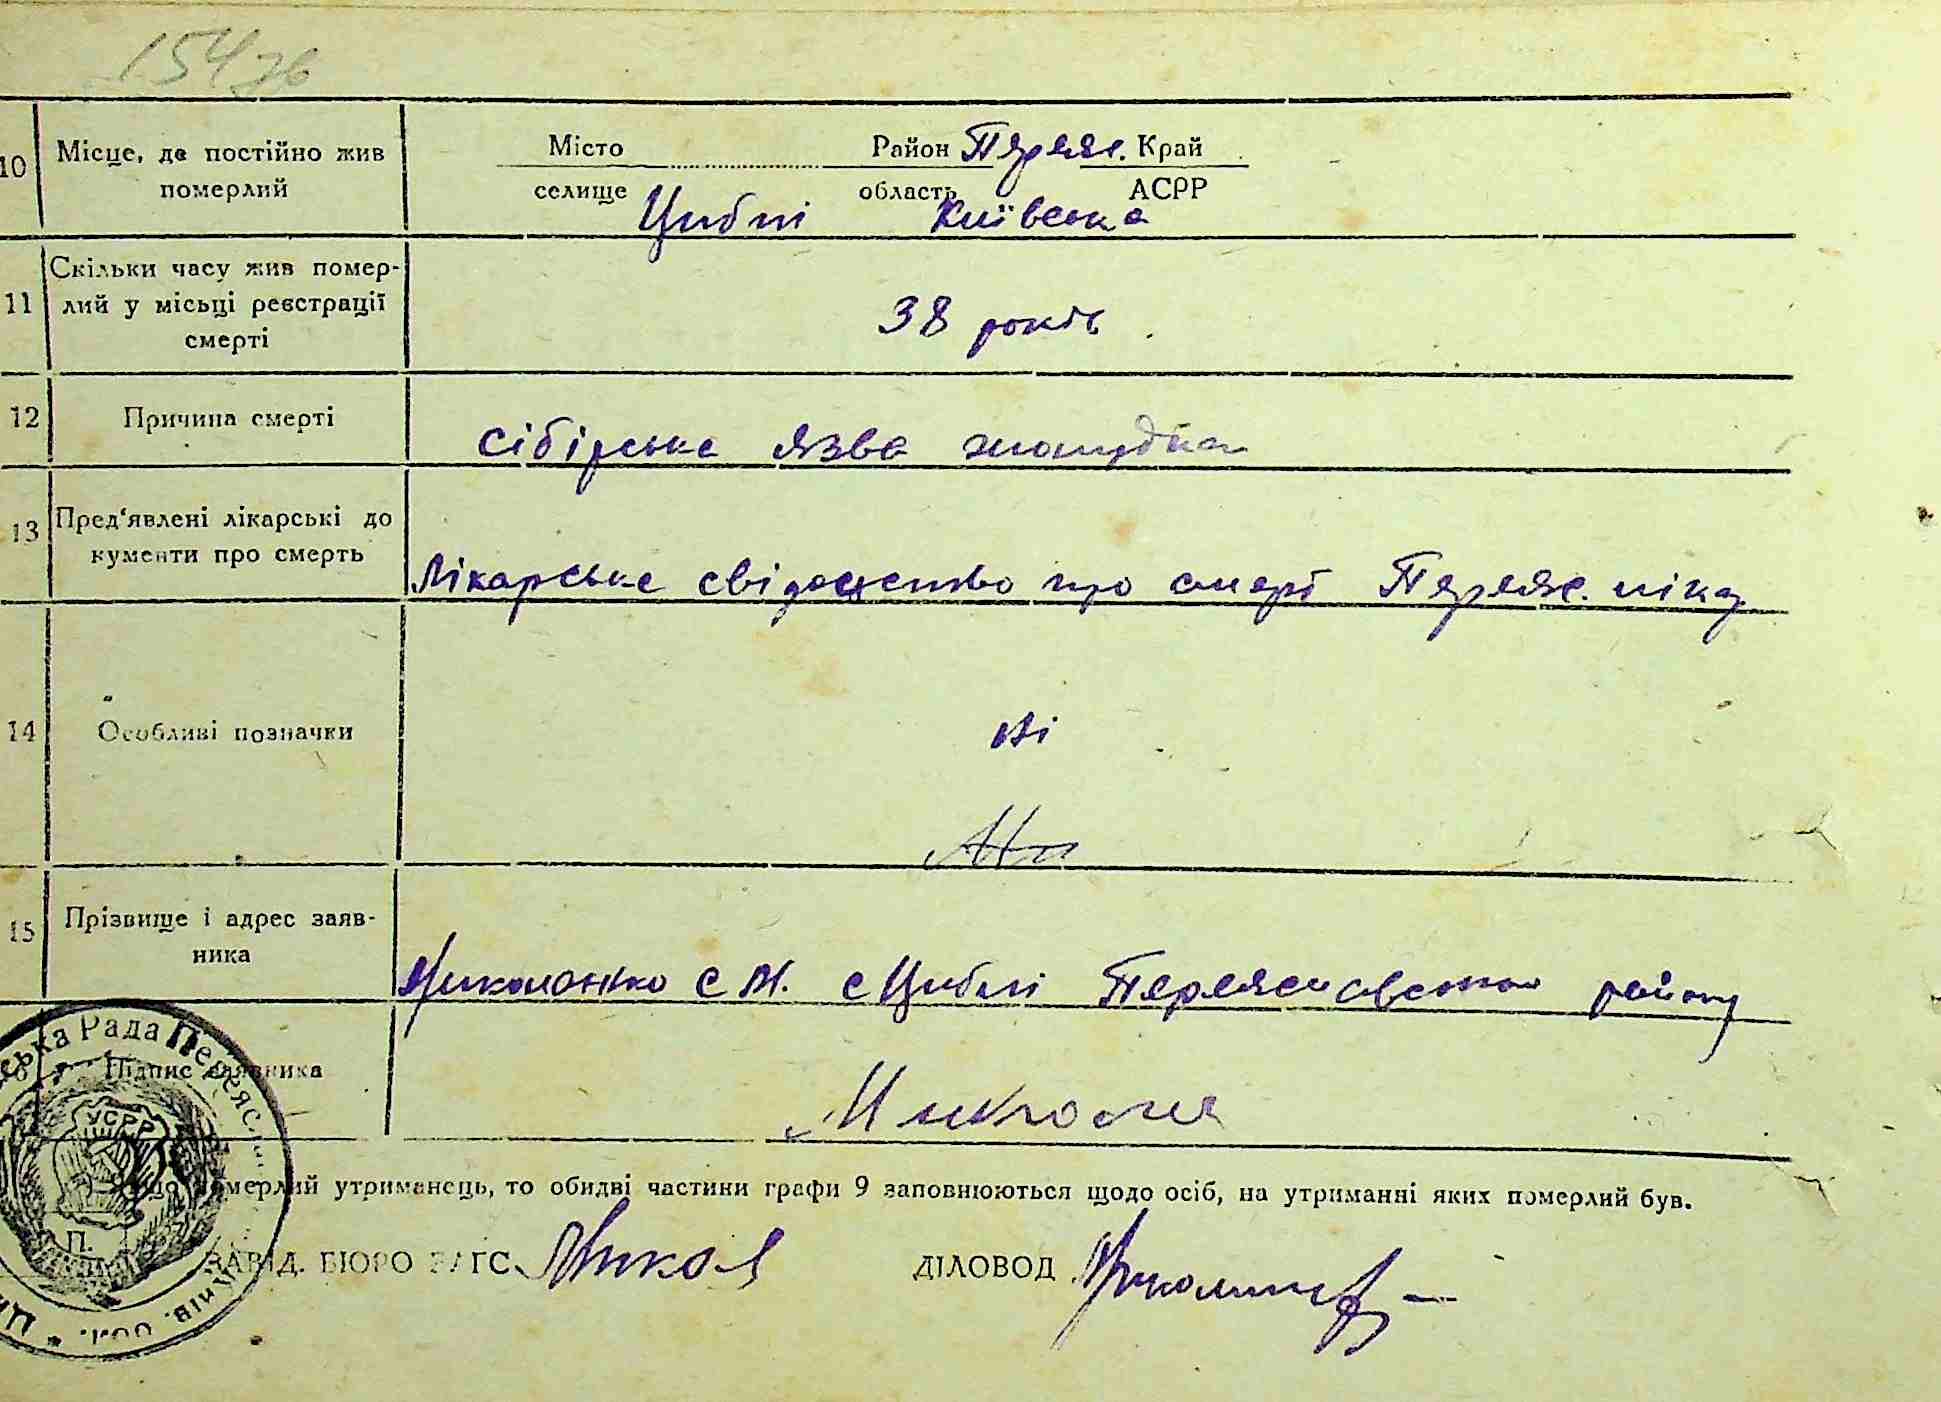 154 зв
10 Місце, де постійно жив померлий
Місто Район Переяс. Край
селище область АСРР
Циблі Київська
11 Скільки часу жив помер-
лий у місьці реєстрації
смерті
38 років
12 Причина смерті
сібірська язва жолудка
13 Пред'явлені лікарські до
кументи про смерть
Лікарське свідоцтво про смерт Переяс. лікар
14 Особливі позначки
Ні
15 Прізвище і адрес заяв-
ника
с Циблі Переяславського району
Підпис заявника
померлий утриманець, то обидві частини графи 9 заповнюються щодо осіб, на утриманні яких померлий був.
ЗАВІД. БЮРО ЗАГС
ДІЛОВОД
ська Рада Переяс
УСРР